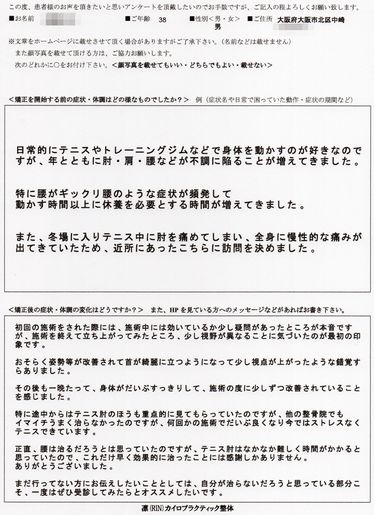 この度、患者様のお声を頂きたいと思いアンケートを頂戴したいのでお手数ですが、ご記入の程よろしくお願い致します。
■お名前 ■ご年齢 38 ■性別<男・女> ■ご住所 大阪府大阪市北区中崎
男
※文章をホームページに載せさせて頂く場合がありますがご了承下さい。(名前などは載せません)
また顔写真を載せて頂ける方は、ご協力お願いします。
次のどれかに〇をお付け下さい。 <顔写真を載せてもいい・どちらでもよい・載せない>
<矯正を開始する前の症状・体調はどの様なものでしたか? 例(症状名や日常で困っていた動作・症状の期間など)
日常的にテニスやトレーニングジムなどで身体を動かすのが好きなので
すが、年とともに肘・肩・腰などが不調に陥ることが増えてきました。
特に腰がギックリ腰のような症状が頻発して
動かす時間以上に休養を必要とする時間が増えてきました。
また、冬場に入りテニス中に肘を痛めてしまい、全身に慢性的な痛みが
出てきていたため、近所にあったこちらに訪問を決めました。
<矯正後の症状・体調の変化はどうですか? また、HPを見ている方へのメッセージなどがあればお書き下さい。
初回の施術をされた際には、施術中には効いているか少し疑問があったところが本音です
が、施術を終えて立ち上がってみたところ、少し視野が異なることに気づいたのが最初の印
象です。
おそらく姿勢等が改善されて首が綺麗に立つようになって少し視点が上がったような錯覚す
らありました。
その後も一晩たって、身体がだいぶすっきりして、施術の度に少しずつ改善されていること
を感じました。
特に途中からはテニス肘のほうも重点的に見てもらっていたのですが、他の整骨院でも
イマイチうまく治らなかったのですが、何回かの施術でだいぶ良くなり今ではストレスなく
テニスできています。
正直、腰は治るだろうとは思っていたのですが、テニス肘はなかなか難しく時間がかかると
思っていたので、これだけ早く効果的に治ったことには感謝しかありません。
ありがとうございました。
まだ行ってない方にお伝えしたいこととしては、自分が治らないだろうと思っている部分こ
そ、一度はぜひ受診してみたらとオススメしたいです。
凛(RIN)カイロプラクティック整体